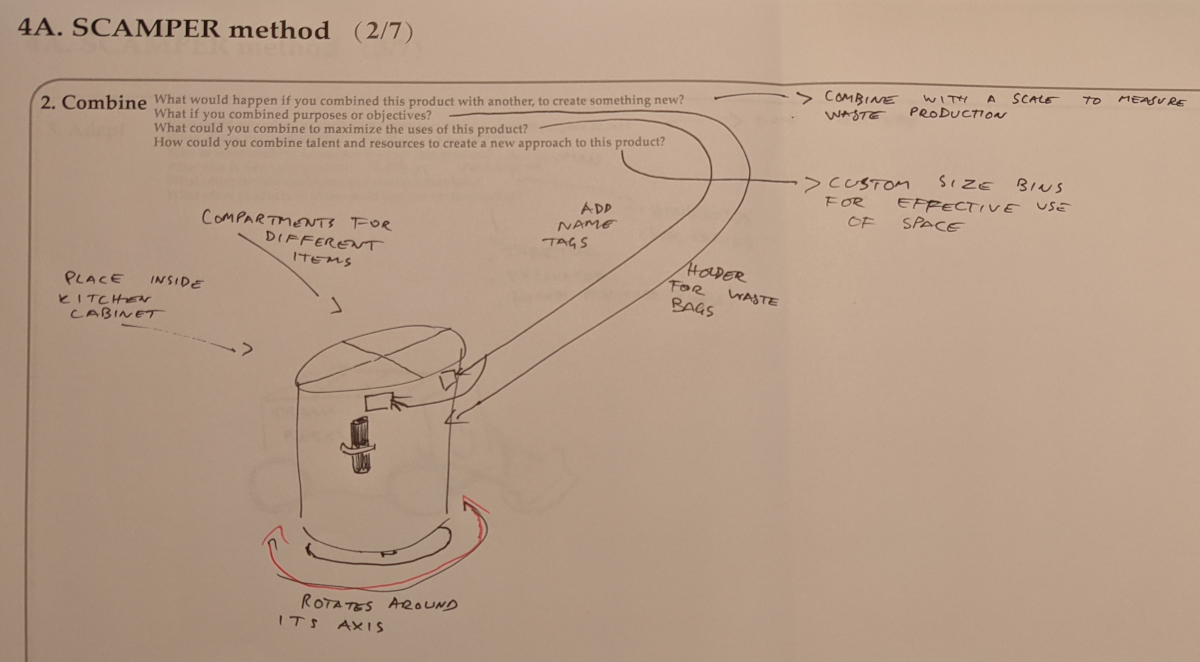 4A. SCAMPER method (2/7)
2. Combine What would happen if you combined this product with another, to create something new?
What if you combined purposes or objectives?
What could you combine to maximize the uses of this product?
How could you combine talent and resources to create a new approach to this product?
COMBINE WITH A SCALE TO MEASURE
WASTE PRODUCTION
CUSTOM SIZE BINS
FOR EFFECTIVE USE
OF SPACE
COMPARTMENTS FOR
DIFFERENT
ITEMS
ADD
NAME
TAGS
PLACE INSIDE
KITCHEN
CABINET
HOLDER
FOR WASTE
BAGS
ROTATES AROUND
ITS AXIS